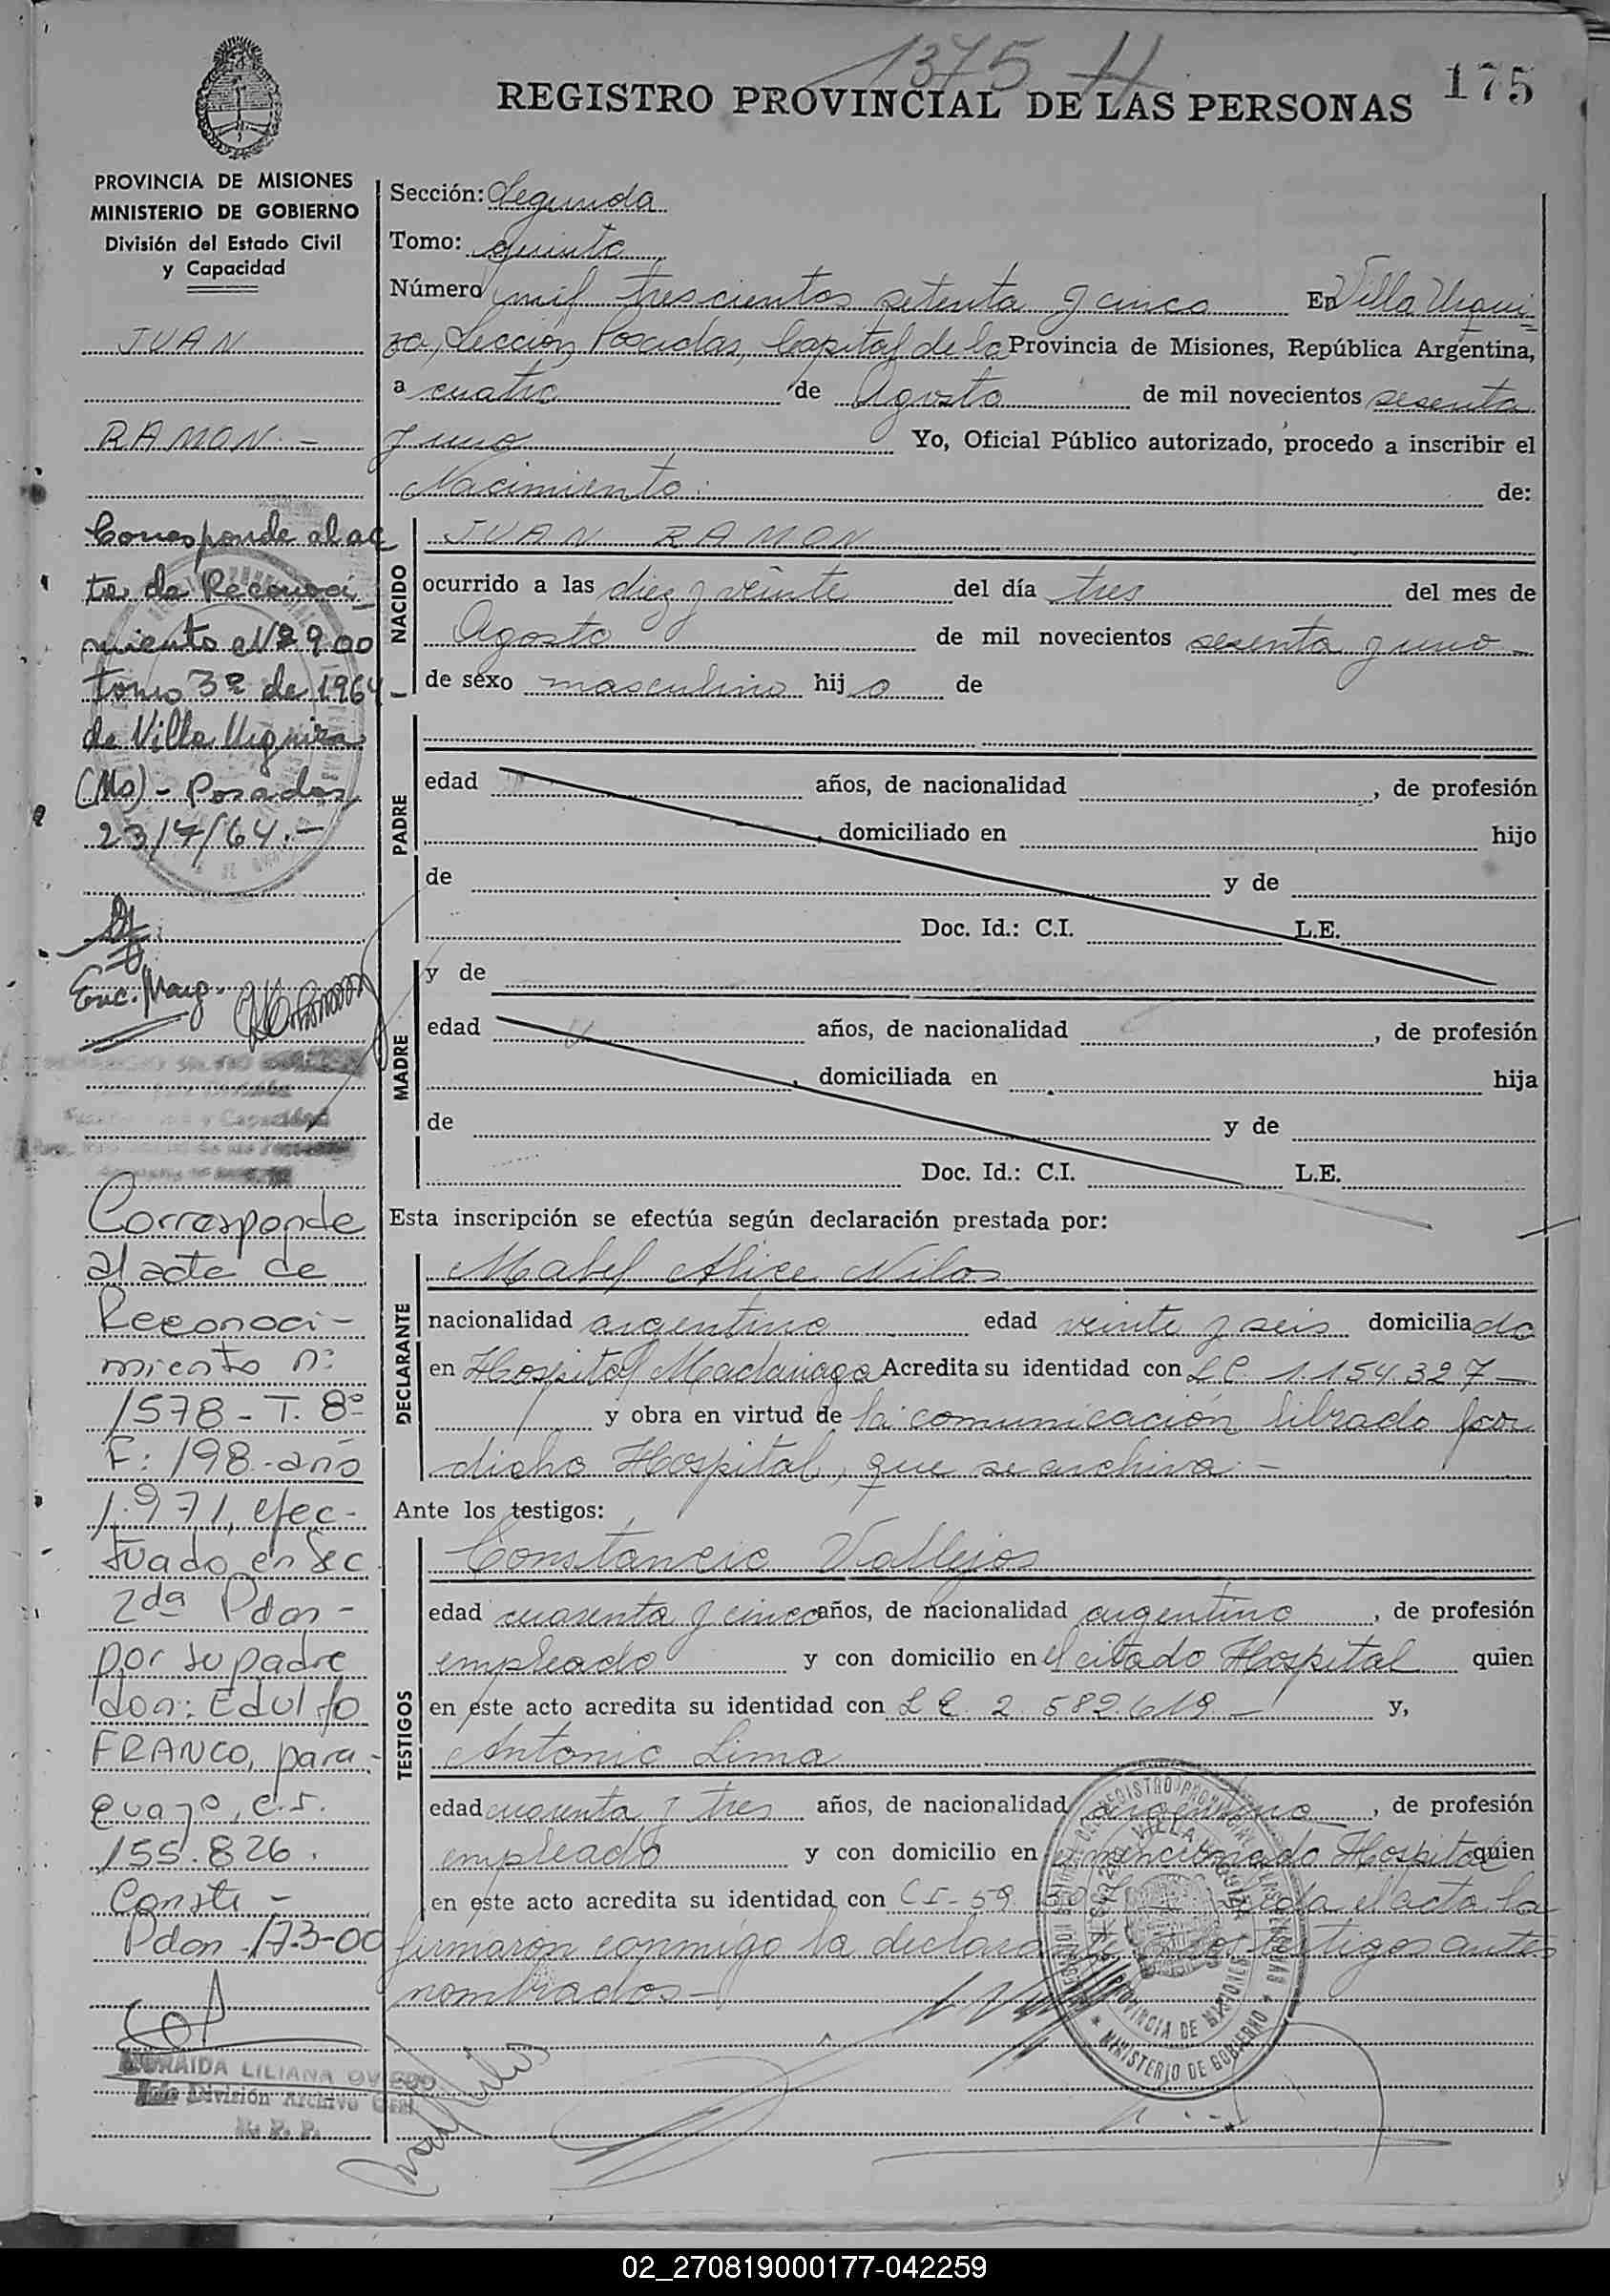 1375 H
175
REGISTRO PROVINCIAL DE LAS PERSONAS
PROVINCIA DE MISIONES
MINISTERIO DE GOBIERNO
División del Estado Civil
y Capacidad
JUAN
RAMON.-
Corresponde al ac
ta de Reconoci
miento Nº 900
tomo 3º de 1964
de Villa Urquiza
(Ms) - Posadas
23/7/64.-
Enc. Marg.
Corresponde
al acta de
Reconoci-
miento nº
1578 - T. 8º
F: 198 - año
1.971, efec-
tuado en Sec
2da Pdas -
por su padre
don: Edulfo
FRANCO, para-
guayo, c.i.
155.826.
Conste -
Pdas. 17-3-00
LILIANA OVIEDO
División Archivo Gral
R. P. P.
Sección: Segunda
Tomo: quinto
Número mil trescientos setenta y cinco En Villa Urqui-
za, Sección Posadas, Capital de la Provincia de Misiones, República Argentina,
a cuatro de Agosto de mil novecientos sesenta
y uno Yo, Oficial Público autorizado, procedo a inscribir el
Nacimiento de:
NACIDO
JUAN RAMON
ocurrido a las diez y veinte del día tres del mes de
Agosto de mil novecientos sesenta y uno -
de sexo masculino hijo de
PADRE
edad años, de nacionalidad , de profesión
, domiciliado en hijo
de y de
Doc. Id.: C.I. L.E.
MADRE
y de
edad años, de nacionalidad , de profesión
, domiciliada en hija
de y de
Doc. Id.: C.I. L.E.
Esta inscripción se efectúa según declaración prestada por:
DECLARANTE
Mabel Alice Nilos
nacionalidad argentina edad veinte y seis domiciliada
en Hospital Madariaga Acredita su identidad con L.C. 1.154.327 -
y obra en virtud de la comunicación librada por
dicho Hospital, que se archiva. -
Ante los testigos:
TESTIGOS
Constancio Vallejos
edad cuarenta y cinco años, de nacionalidad argentino , de profesión
empleado y con domicilio en el citado Hospital quien
en este acto acredita su identidad con L E. 2.582.619 - y,
Antonio Lima
edad cuarenta y tres años, de nacionalidad argentino , de profesión
empleado y con domicilio en el mencionado Hospital quien
en este acto acredita su identidad con C I - 59 leda el acta la
firmaron conmigo la declarante y los testigos antes
nombrados -
REGISTRO PROVINCIAL DE LAS PERSONAS
VILLA URQUIZA
PROVINCIA DE MISIONES
* MINISTERIO DE GOBIERNO *
02_270819000177-042259